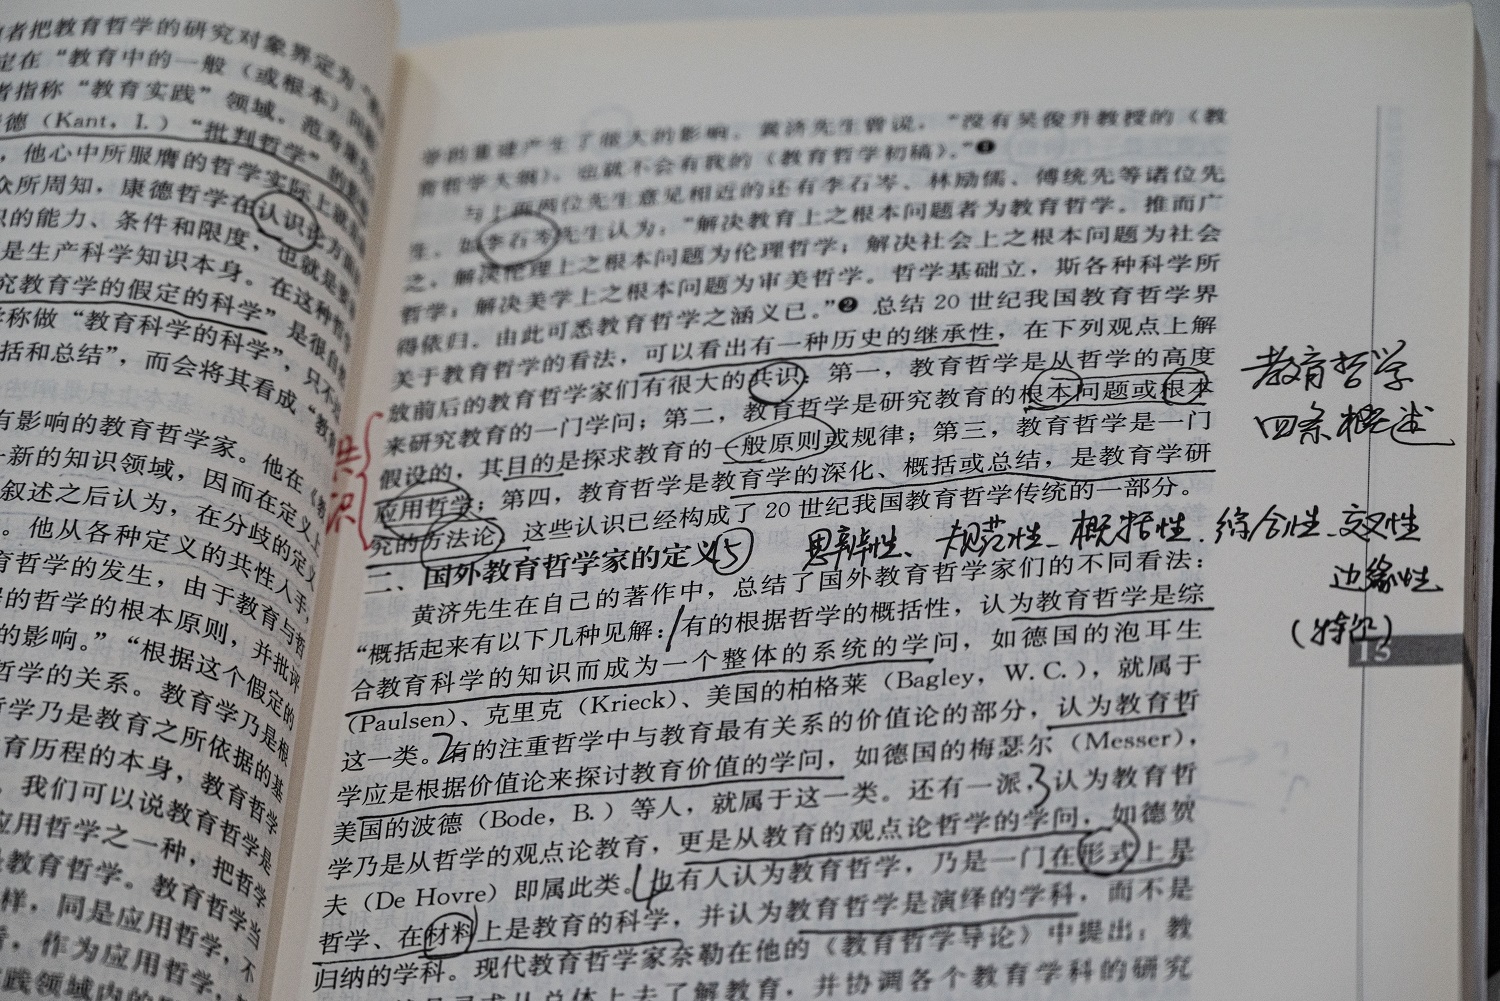 者把教育哲学的研究对象界定为“
定在“教育中的一般（或根本）问题
者指称“教育实践”领域。范寿康
德（Kant，I.）“批判哲学”的
，他心中所服膺的哲学实际上就
众所周知，康德哲学在认识论方面
识的能力、条件和限度，也就是
是生产科学知识本身。在这种
究教育学的假定的科学”是很自
称做“教育科学的科学”，只不
括和总结”，而会将其看成“教
有影响的教育哲学家。他在《
新的知识领域，因而在定义上
叙述之后认为，在分歧的定义
。他从各种定义的共性入手，
育哲学的发生，由于教育与哲
的哲学的根本原则，并批评
的影响。”“根据这个假定的
哲学的关系。教育学乃是根
学乃是教育之所依据的基
育历程的本身，教育哲学
。我们可以说教育哲学是
应用哲学之一种，把哲学
教育哲学。教育哲学当
样，同是应用哲学，不
，作为应用哲学，
践领域内的
学的重建产生了很大的影响。黄济先生曾说，“没有吴俊升教授的《教
育哲学大纲》，也就不会有我的《教育哲学初稿》。”❶
与上面两位先生意见相近的还有李石岑、林励儒、傅统先等诸位先
生。如李石岑先生认为：“解决教育上之根本问题者为教育哲学。推而广
之，解决伦理上之根本问题为伦理哲学；解决社会上之根本问题为社会
哲学；解决美学上之根本问题为审美哲学。哲学基础立，斯各种科学所
得依归。由此可悉教育哲学之涵义已。”❷ 总结20世纪我国教育哲学界
关于教育哲学的看法，可以看出有一种历史的继承性，在下列观点上解
放前后的教育哲学家们有很大的共识：第一，教育哲学是从哲学的高度
来研究教育的一门学问；第二，教育哲学是研究教育的根本问题或根本
假设的，其目的是探求教育的一般原则或规律；第三，教育哲学是一门
应用哲学；第四，教育哲学是教育学的深化、概括或总结，是教育学研
究的方法论。这些认识已经构成了20世纪我国教育哲学传统的一部分。
共识
教育哲学
四条概述
二、国外教育哲学家的定义⑤
思辨性、规范性、概括性、综合性、交叉性
边缘性
（特征）
黄济先生在自己的著作中，总结了国外教育哲学家们的不同看法：
“概括起来有以下几种见解：1有的根据哲学的概括性，认为教育哲学是综
合教育科学的知识而成为一个整体的系统的学问，如德国的泡耳生
（Paulsen）、克里克（Krieck）、美国的柏格莱（Bagley，W.C.），就属于
这一类。2有的注重哲学中与教育最有关系的价值论的部分，认为教育哲
学应是根据价值论来探讨教育价值的学问，如德国的梅瑟尔（Messer），
美国的波德（Bode，B.）等人，就属于这一类。还有一派，3认为教育哲
学乃是从哲学的观点论教育，更是从教育的观点论哲学的学问，如德贺
夫（De Hovre）即属此类。4也有人认为教育哲学，乃是一门在形式上是
哲学、在材料上是教育的科学，并认为教育哲学是演绎的学科，而不是
归纳的学科。现代教育哲学家奈勒在他的《教育哲学导论》中提出：教
从总体上去了解教育，并协调各个教育学科的研究
15